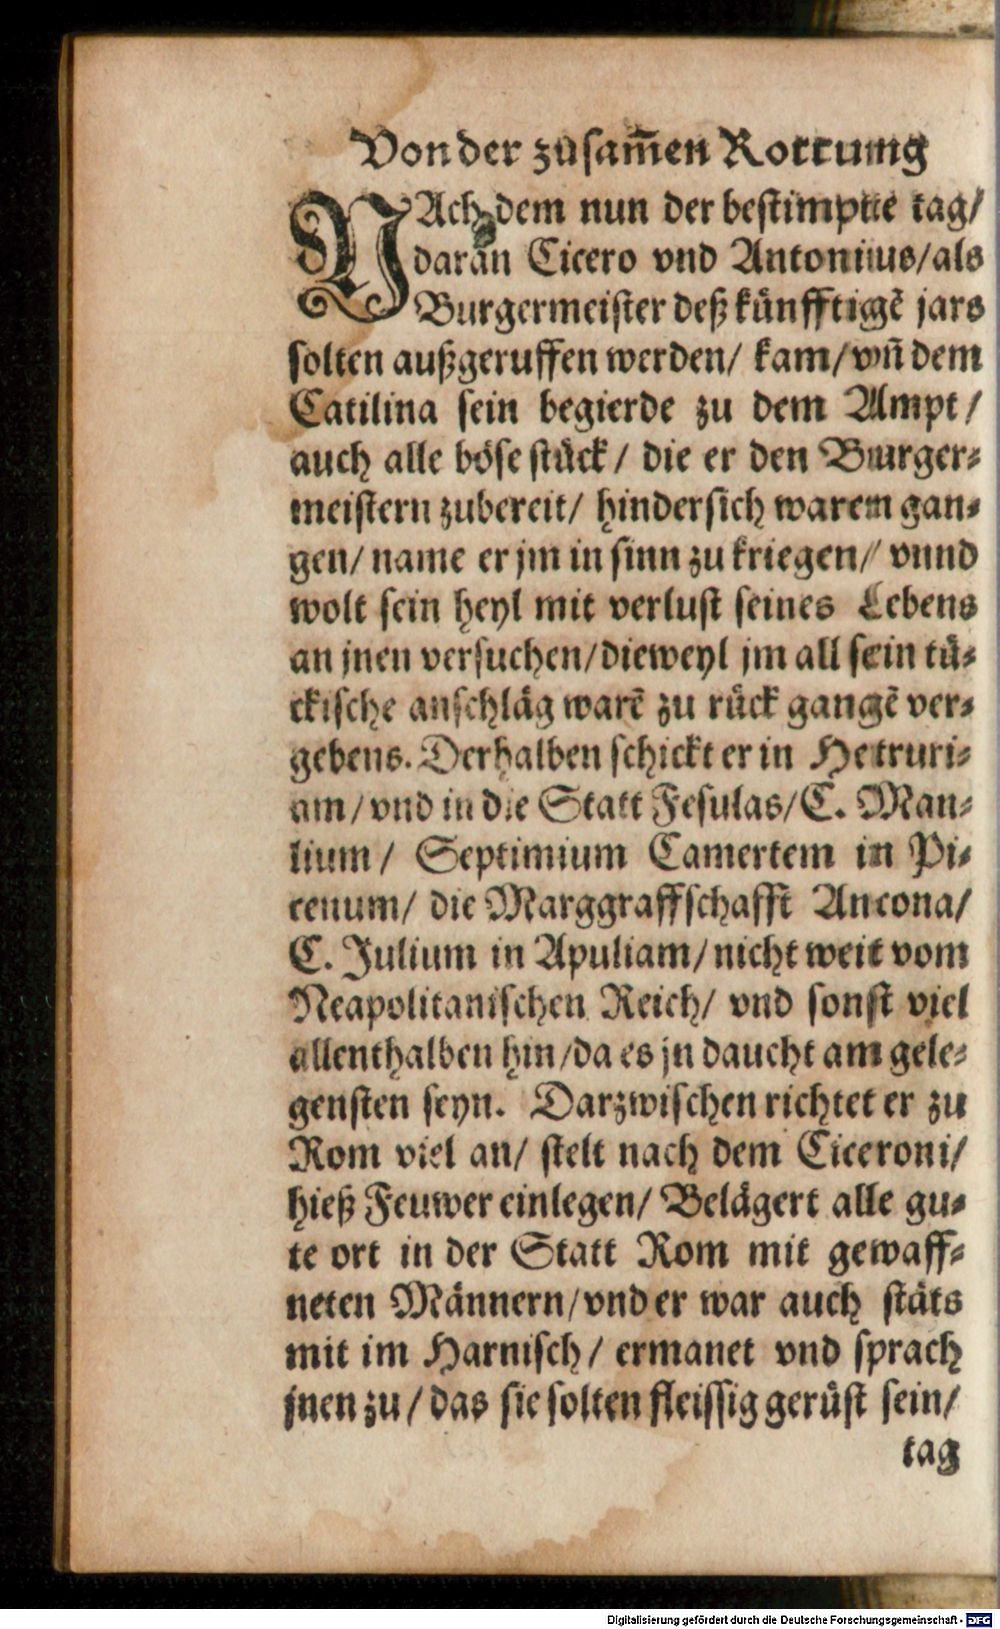 Von der zusam̄en Rottung
NAch dem nun der bestimpte tag/
daran Cicero vnd Antonius/als
Burgermeister deß künfftigẽ jars
solten außgeruffen werden/ kam/vñ dem
Catilina sein begierde zu dem Ampt/
auch alle böse stück/ die er den Burger-
meistern zubereit/ hindersich waren gan-
gen/ name er jm in sinn zu kriegen/ vnnd
wolt sein heyl mit verlust seines Lebens
an jnen versuchen/dieweyl jm all sein tü-
ckische anschläg warẽ zu rück gangẽ ver-
gebens. Derhalben schickt er in Hetruri-
am/vnd in die Statt Fesulas/C. Man-
lium/ Septimium Camertem in Pi-
cenum/ die Marggraffschafft Ancona/
C. Julium in Apuliam/nicht weit vom
Neapolitanischen Reich/ vnd sonst viel
allenthalben hin/da es jn daucht am gele-
gensten seyn. Darzwischen richtet er zu
Rom viel an/ stelt nach dem Ciceroni/
hieß Feuwer einlegen/ Belägert alle gu-
te ort in der Statt Rom mit gewaff-
neten Männern/vnd er war auch stäts
mit im Harnisch/ ermanet vnd sprach
jnen zu/das sie solten fleissig gerüst sein/
tag
Digitalisierung gefördert durch die Deutsche Forschungsgemeinschaft - DFG